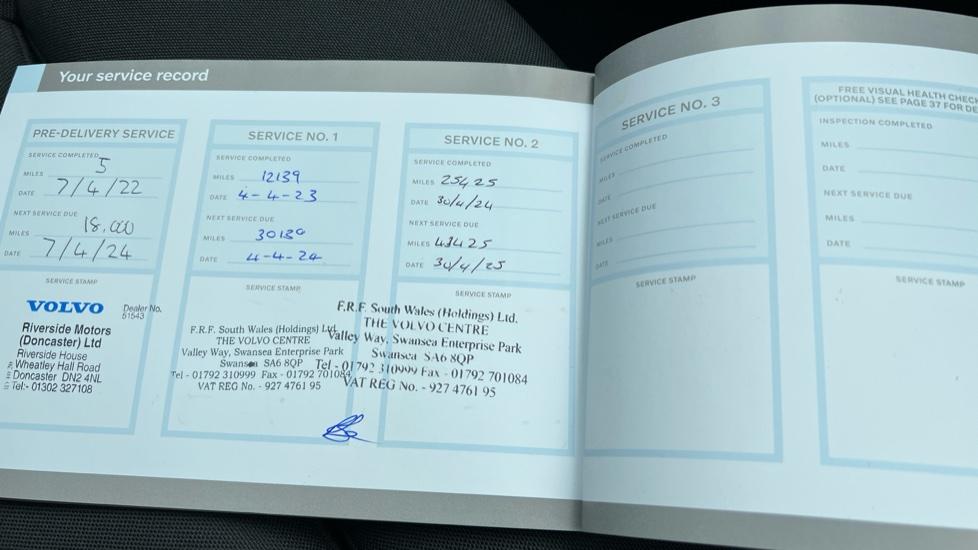 Your service record
PRE-DELIVERY SERVICE
SERVICE COMPLETED
MILES 5
DATE 7/4/22
NEXT SERVICE DUE
MILES 18,000
DATE 7/4/24
SERVICE STAMP
VOLVO
Dealer No.
51543
Riverside Motors
(Doncaster) Ltd
Riverside House
Wheatley Hall Road
Doncaster DN2 4NL
Tel:- 01302 327108
SERVICE NO. 1
SERVICE COMPLETED
MILES 12139
DATE 4-4-23
NEXT SERVICE DUE
MILES 30139
DATE 4-4-24
SERVICE STAMP
F.R.F. South Wales (Holdings) Ltd.
THE VOLVO CENTRE
Valley Way, Swansea Enterprise Park
Swansea SA6 8QP
Tel - 01792 310999 Fax - 01792 701084
VAT REG No. - 927 4761 95
SERVICE NO. 2
SERVICE COMPLETED
MILES 25425
DATE 30/4/24
NEXT SERVICE DUE
MILES 43425
DATE 30/4/25
SERVICE STAMP
F.R.F. South Wales (Holdings) Ltd.
THE VOLVO CENTRE
Valley Way, Swansea Enterprise Park
Swansea SA6 8QP
Tel - 01792 310999 Fax - 01792 701084
VAT REG No. - 927 4761 95
SERVICE NO. 3
SERVICE COMPLETED
MILES
DATE
NEXT SERVICE DUE
MILES
DATE
SERVICE STAMP
FREE VISUAL HEALTH CHECK
(OPTIONAL) SEE PAGE 37 FOR DE
INSPECTION COMPLETED
MILES
DATE
NEXT SERVICE DUE
MILES
DATE
SERVICE STAMP